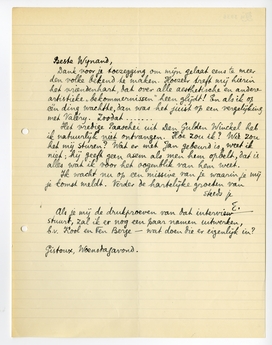 Beste Wynand,
Dank voor je toezegging om mijn gelaat eens te meer
den volke bekend te maken. Hoezeer treft mij hieren
het vriendenhart, dat over alle aesthetische en andere
artistieke "bekommernissen" heen glijdt! En als ik op
één ding wachtte, dan was het juist op een vergelijking
met Valéry. Zoodat.......
Het vredige Paaschei uit Den Gulden Winckel heb
ik natuurlijk niet ontvangen. Hoe zou ik? Wel zou
het mij sturen? Wat er met Jan gebeurd is, weet ik
niet; hij geeft geen asem als men hem oproept, dat is
alles wat ik voor het oogenblik van hem weet.
Ik wacht nu op een missive van je waarin je mij
je komst meldt. Verder de hartelijke groeten van
steeds je
E.
Als je mij de drukproeven van dat interview
stuurt, zal ik er nog een paar namen uitwerken,
b.v. Kool en Ten Berge — wat doen die er eigenlijk in?
Gistoux, Woensdagavond.